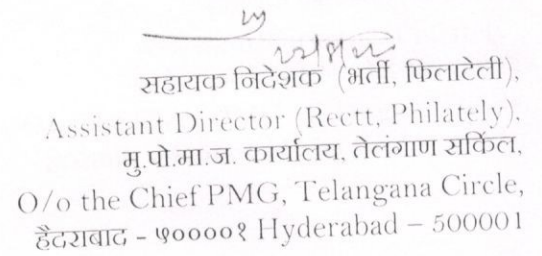 सहायक निदेशक (भर्ती, फिलाटेली),
Assistant Director (Rectt, Philately),
मु.पो.मा.ज. कार्यालय, तेलंगाण सर्किल,
O/o the Chief PMG, Telangana Circle,
हैदराबाद - ५००००१ Hyderabad – 500001